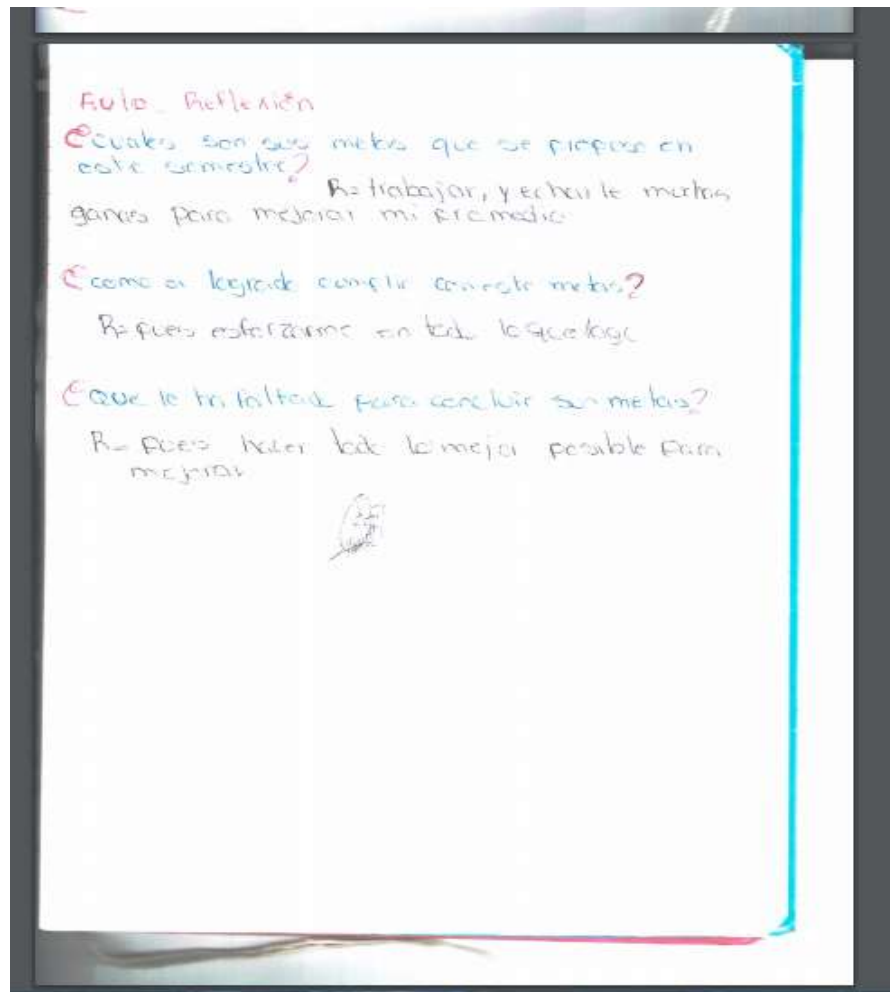 Auto Reflexión
¿Cuales son sus metas que se propuso en
este semestre?
R= trabajar, y echarle muchas
ganas para mejorar mi promedio
¿como a logrado cumplir con este metas?
R= pues esforzarme en todo lo que hago
¿Que le ha faltado para concluir sus metas?
R= pues hacer todo lo mejor posible para
mejorar